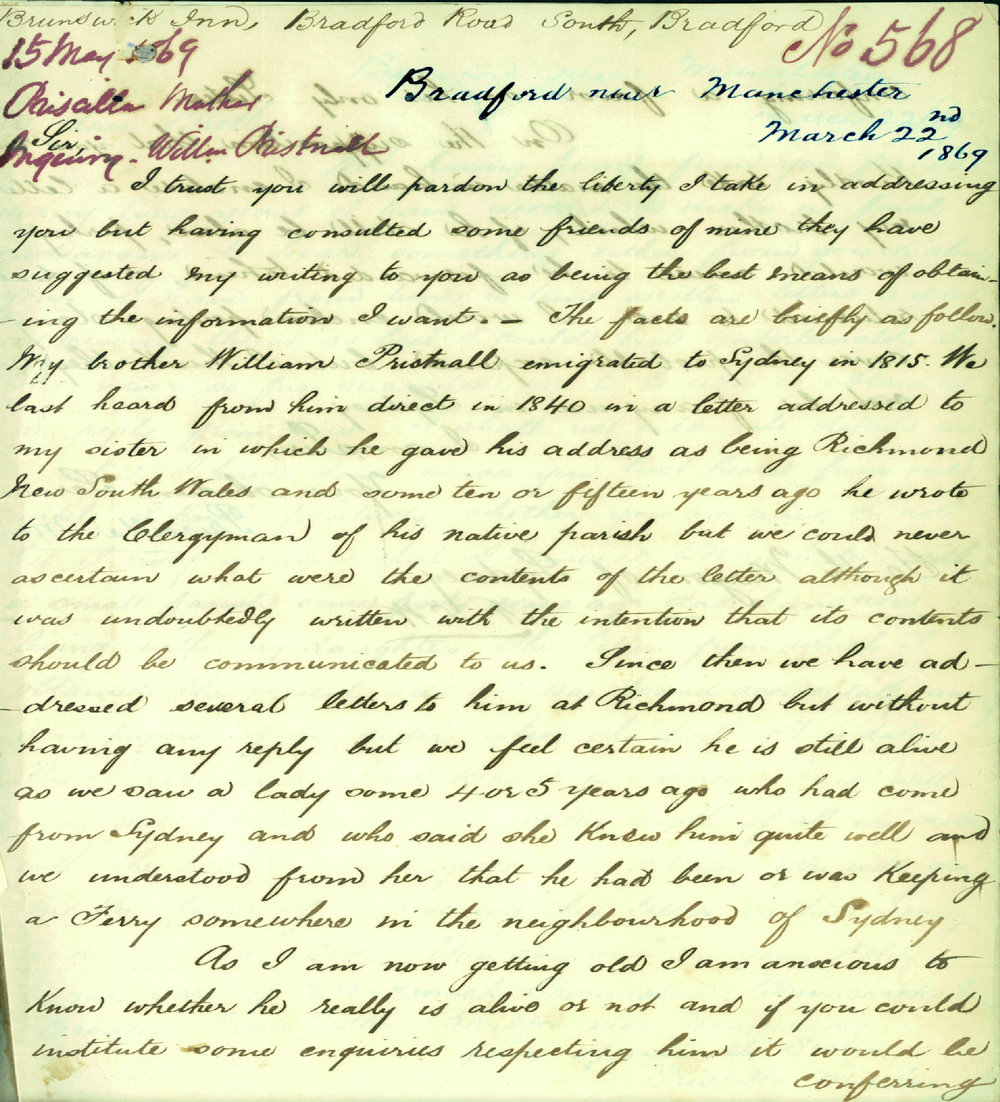 Brunswick Inn, Bradford Road South, Bradford
No 568
15 May 1869
Priscilla Mather
Bradford near Manchester
March 22nd
1869
Sir,
Inquiry. Willm Pristnall
I trust you will pardon the liberty I take in addressing
you but having consulted some friends of mine they have
suggested my writing to you as being the best means of obtain-
-ing the information I want. - The facts are briefly as follow.
My brother William Pristnall emigrated to Sydney in 1815. We
last heard from him direct in 1840 in a letter addressed to
my sister in which he gave his address as being Richmond
New South Wales and some ten or fifteen years ago he wrote
to the Clergyman of his native parish but we could never
ascertain what were the contents of the letter although it
was undoubtedly written with the intention that its contents
should be communicated to us. Since then we have ad-
-dressed several letters to him at Richmond but without
having any reply but we feel certain he is still alive
as we saw a lady some 4 or 5 years ago who had come
from Sydney and who said she knew him quite well and
we understood from her that he had been or was keeping
a Ferry somewhere in the neighbourhood of Sydney
As I am now getting old I am anxious to
know whether he really is alive or not and if you could
institute some enquiries respecting him it would be
conferring